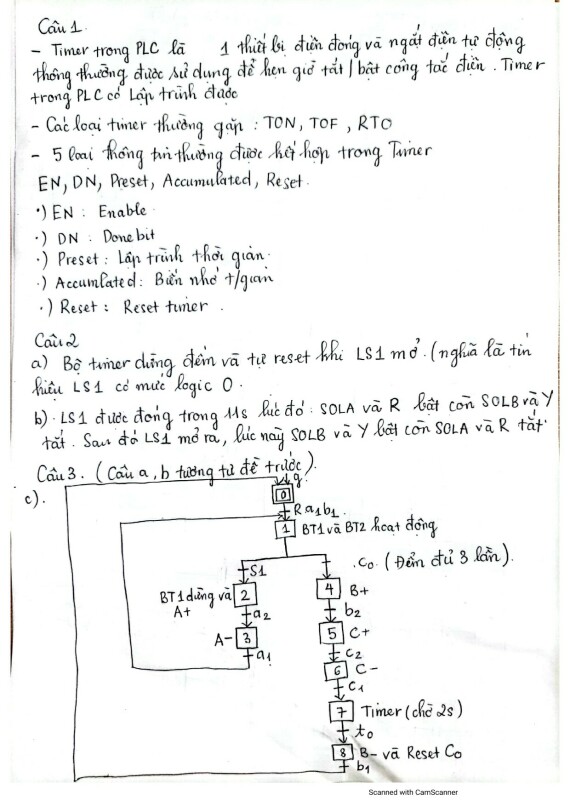 Câu 1.
- Timer trong PLC là 1 thiết bị điện đóng và ngắt điện tự động
thông thường được sử dụng để hẹn giờ tắt / bật công tắc điện. Timer
trong PLC có Lập trình được
- Các loại timer thường gặp : TON, TOF, RTO
- 5 loại thông tin thường được kết hợp trong Timer
EN, DN, Preset, Accumulated, Reset.
•) EN : Enable
•) DN : Done bit
•) Preset : Lập trình thời gian.
•) Accumlated : Biến nhớ t/gian
•) Reset : Reset timer.
Câu 2
a) Bộ timer dừng đếm và tự reset khi LS1 mở. (nghĩa là tín
hiệu LS1 có mức logic 0.
b). LS1 được đóng trong 11s lúc đó : SOLA và R bật còn SOLB và Y
tắt. Sau đó LS1 mở ra, lúc này SOLB và Y bật còn SOLA và R tắt.
Câu 3. (Câu a, b tương tự đề trước).
c).
g.
0
R a1 b1.
1 BT1 và BT2 hoạt động
S1
.C0. (Đếm đủ 3 lần).
BT1 dừng và 2
A+
4 B+
a2
b2
A- 3
5 C+
a1
c2
6 C-
c1
7 Timer (chờ 2s)
t0
8 B- và Reset C0
b1
Scanned with CamScanner